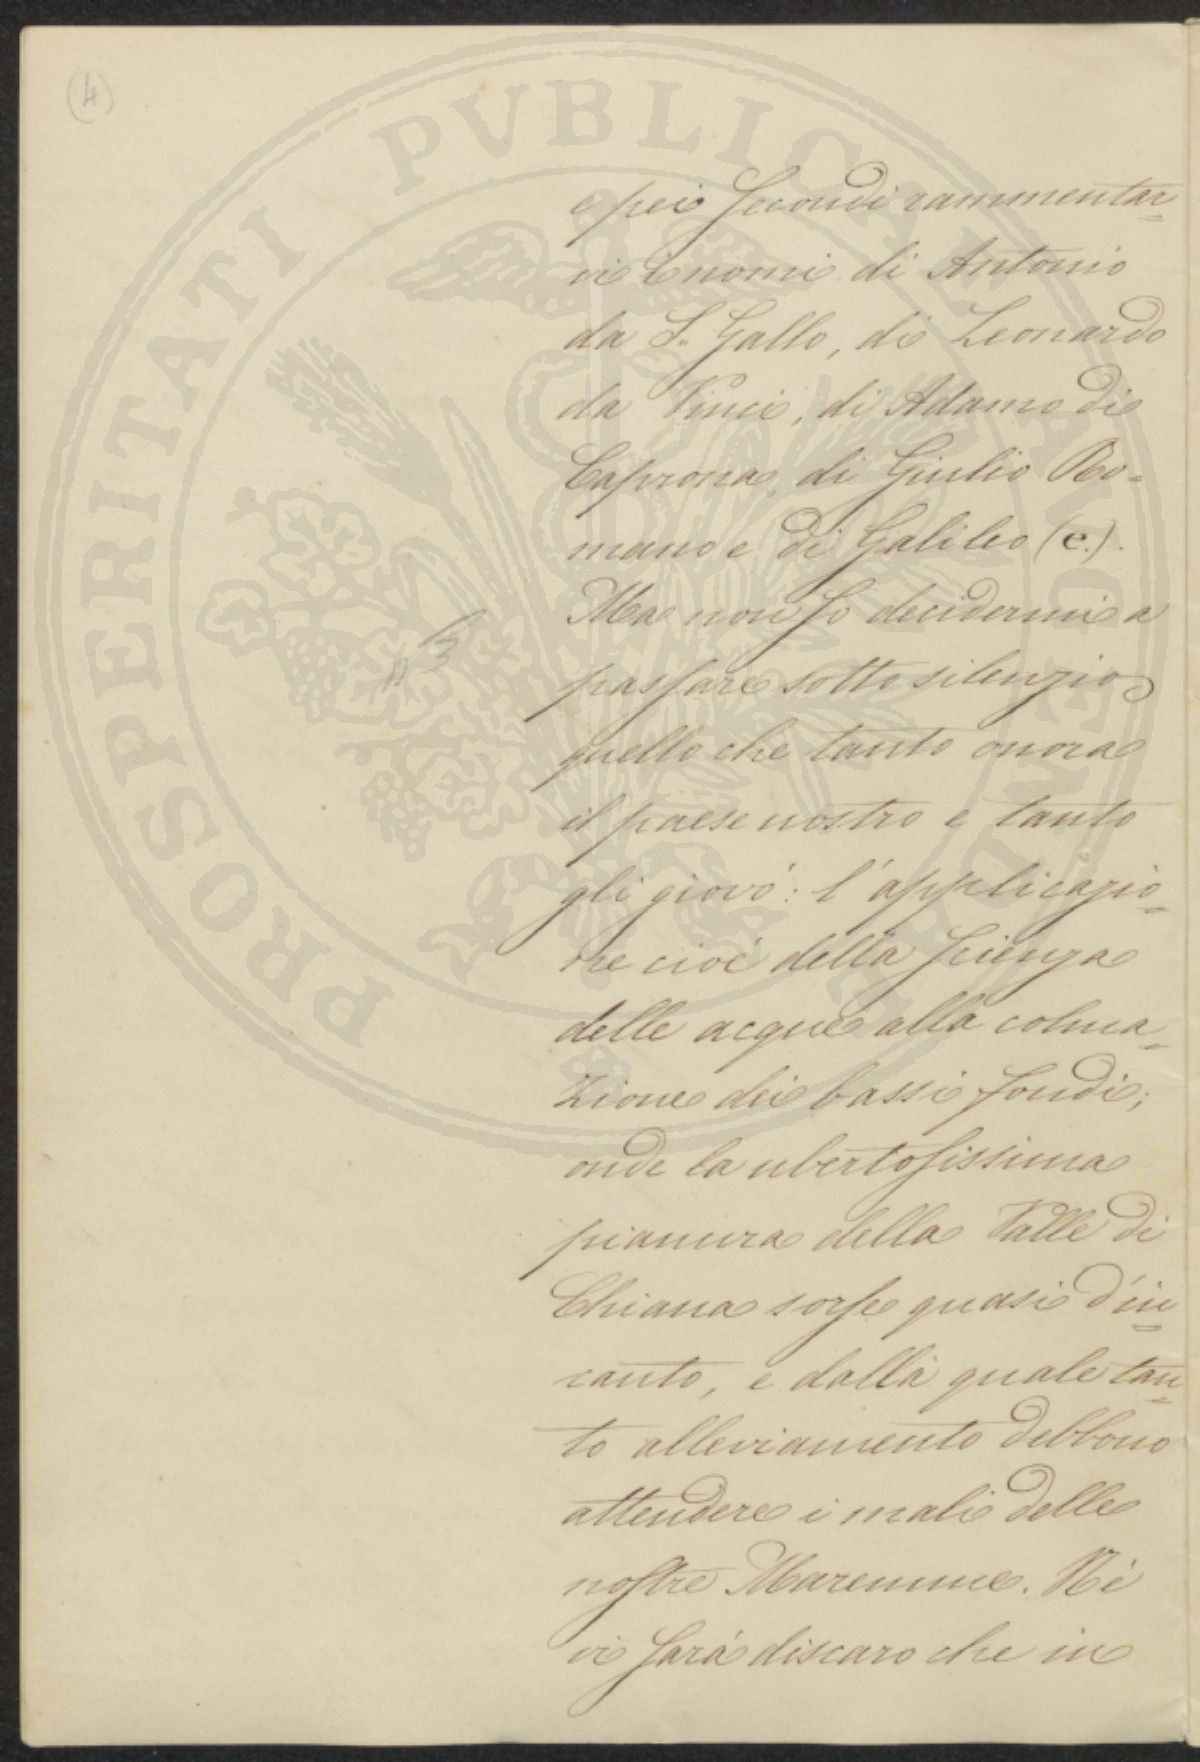 (4)
e pei secondi rammentar=
vi i nomi di Antonio
da S. Gallo, di Leonardo
da Vinci, di Adamo di
Caprona, di Giulio Ro=
mano e di Galileo (e.).
Ma non so decidermi a
passare sotto silenzio
quello che tanto onora
il paese nostro e tanto
gli giovò: l'applicazio=
ne cioè della scienza
delle acque alla colma=
zione dei bassi fondi;
onde la ubertosissima
pianura della Valle di
Chiana sorse quasi d'in=
canto, e dalla quale tan=
to alleviamento debbono
attendere i mali delle
nostre Maremme. Nè
vi sarà discaro che in
PROSPERITATI PVBLICAE AVGENDAE